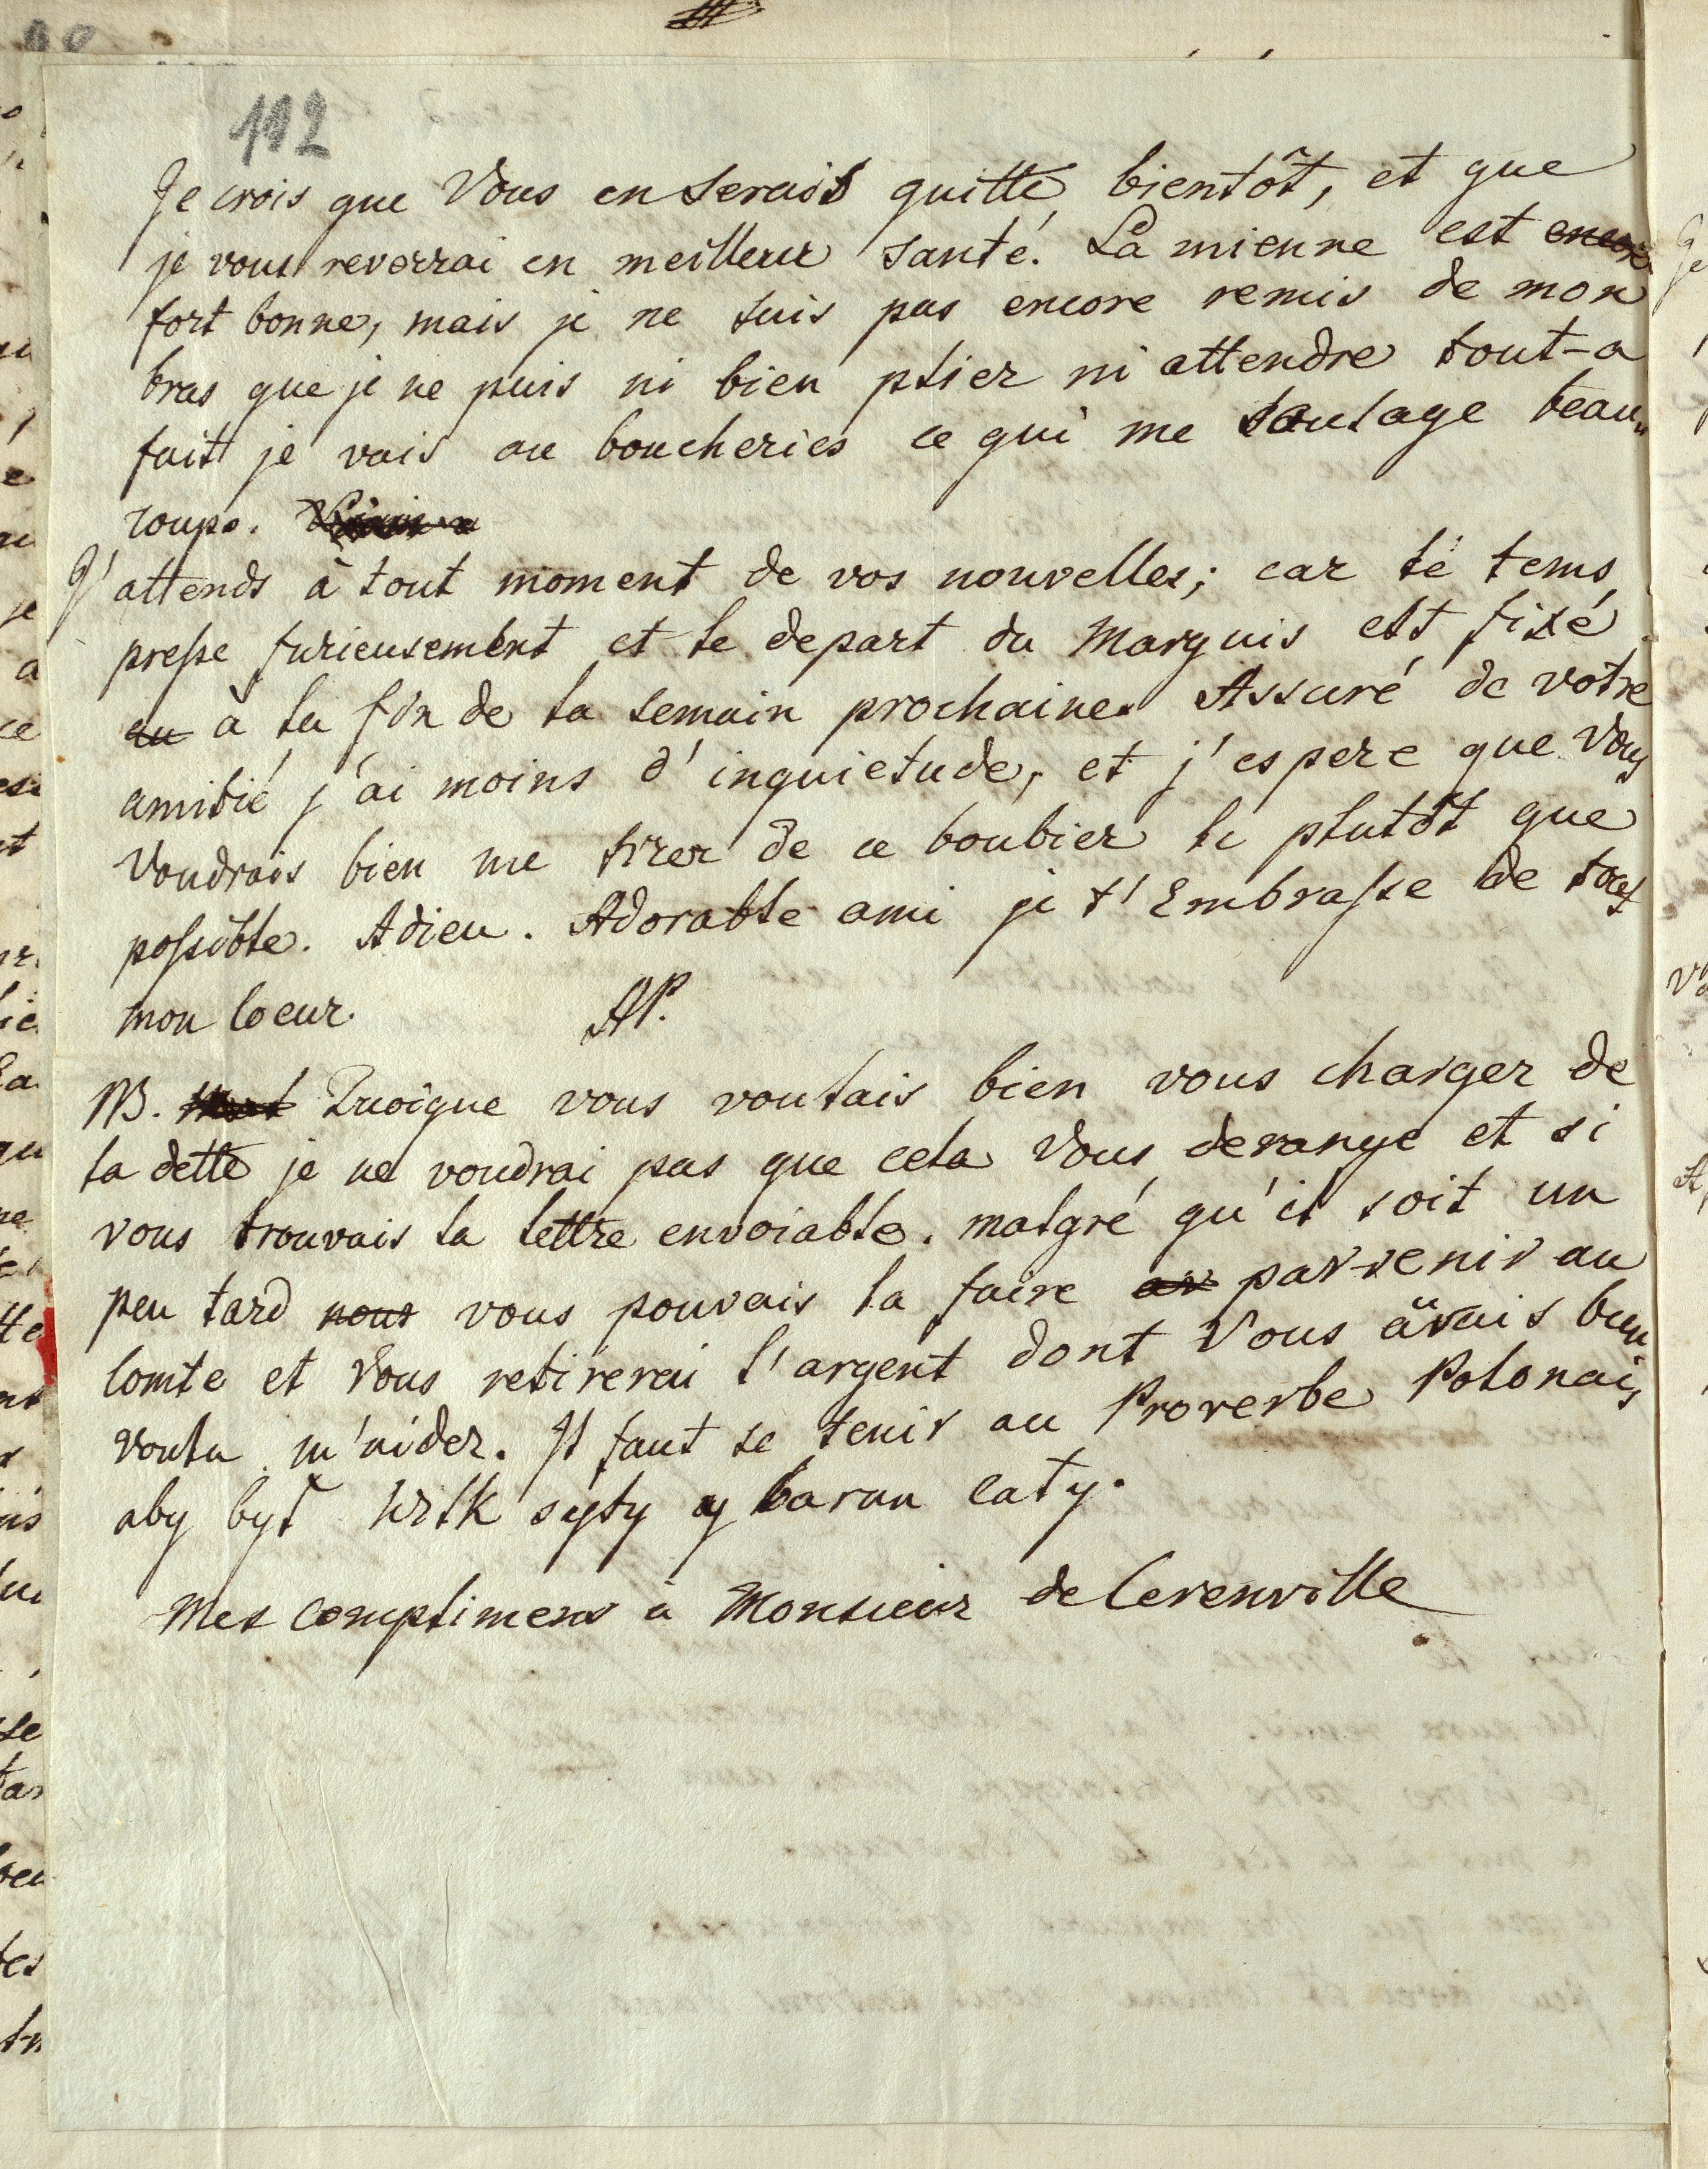 112
Je crois que Vous en serais quitte bientôt, et que
je vous reverrai en meilleur santé. La mienne est encore
fort bonne, mais je ne suis pas encore remis de mon
bras que je ne puis ni bien plier ni attendre tout-a
fait je vais au boucheries ce qui me soulage beau„
coups.
J'attends à tout moment de vos nouvelles; car le tems
presse furieusement et le depart du Marquis est fixé
au à la fin de la semain prochaine. Assuré de votre
amitié j'ai moins d'inquietude, et j'espere que Vous
Voudrais bien me tirer de ce boubier le plutôt que
possible. Adieu. Adorable ami je t'Embrasse de tout
mon Coeur. AP.
NB. Quoique vous voulais bien vous charger de
la dette je ne voudrai pas que cela Vous derange et si
vous trouvais la lettre envoiable. malgré qu'il soit un
peu tard nous vous pouvais la faire av parvenir au
Comte et Vous retirerai l'argent dont Vous avais bien
voulu m'aider. Il faut se tenir au Proverbe Polonais
aby był Wilk syty y baran cały.
Mes complimens à Monsieur de Cerenville